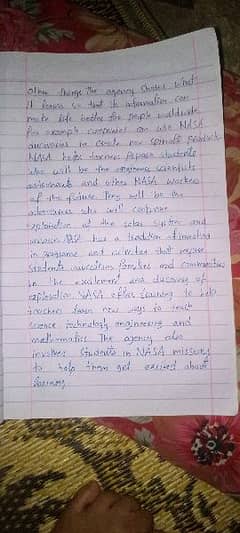 other things The agency shares what
it learns so that its information can
make life better for people worldwide
For example companies can use NASA
discoveries to create new spinoff products
NASA helps teachers prepare students
who will be the engineers scientists
astronauts and other NASA workers
of the future They will be the
adventurers who will continue
exploration of the solar system and
universe NASA has a tradition of investing
in programs and activities that inspire
students educators families and communities
in the excitement and discovery of
exploration NASA offers training to help
teachers learn new ways to teach
science technology engineering and
mathematics The agency also
involves students in NASA missions
to help them get excited about
learning